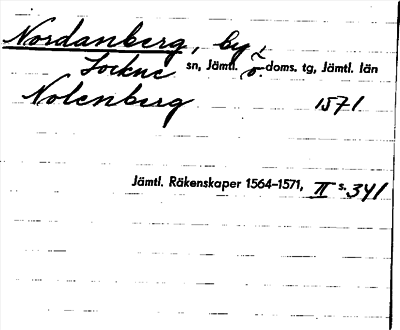 Nordanberg, by,
Lockne sn, Jämtl. ö. doms. tg, Jämtl. län
Nolenberg 1571
Jämtl. Räkenskaper 1564-1571, II s. 341